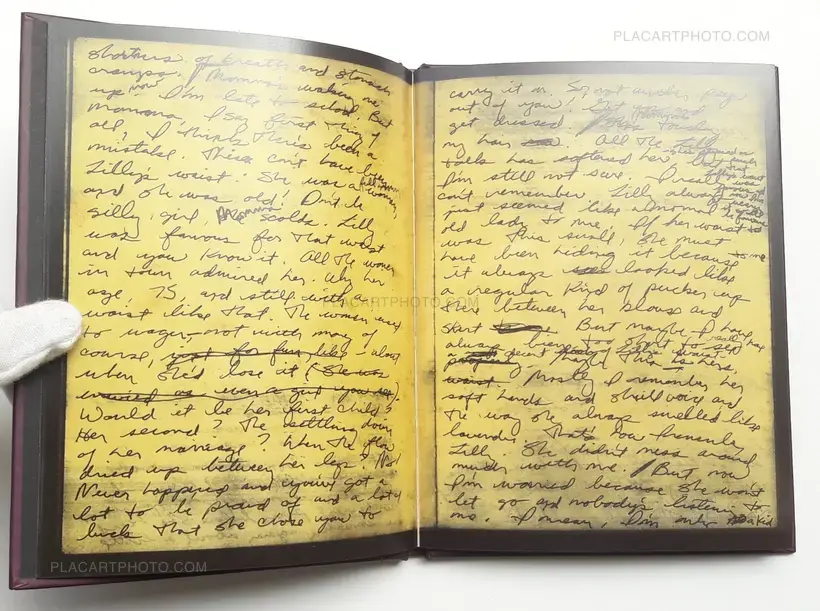 PLACARTPHOTO.COM
shortness of breath and stomach
cramps. / Momma's waking me
up now. I'm late to school. But
mamma, I say first thing of
all, I think there's been a
mistake. There can't have been
Lilly's waist. She was a full grown woman,
and she was old! Don't be
silly, girl, Momma scolds. Lilly
was famous for that waist
and you know it. All the women
in town admired her. Why her
age, 75, and still with a
waist like that. The women used
to wager, not with money of
course, just for fun, like about
when she'd lose it (She was
married as even a girl you see).
Would it be her first child?
Her second? The settling down
of her marriage? When the flow
dried up between her legs? No!
Never happened and you've got a
lot to be proud of and a lot of
luck that she chose you to
carry it on. So, not another peep
out of you! Get
get dressed. / She touches
my hair. All the
talk has softened her. But
I'm still not sure. I really
can't remember. Lilly always
just seemed like a normal
old lady to me. If her waist
was this small, she must
have been hiding it because to me
it always looked like
a regular kind of pucker up
there between her blouse and
skirt. But maybe I have
always been too short to see
Mostly I remember her
soft hands and shrill voice and
the way she always smelled like
lavender. That's how
Lilly. She didn't mess around
much with me. / But now
I'm worried because she won't
let go and nobody's listening to
me. I mean, I'm only a kid
PLACARTPHOTO.COM
PLACARTPHOTO.COM